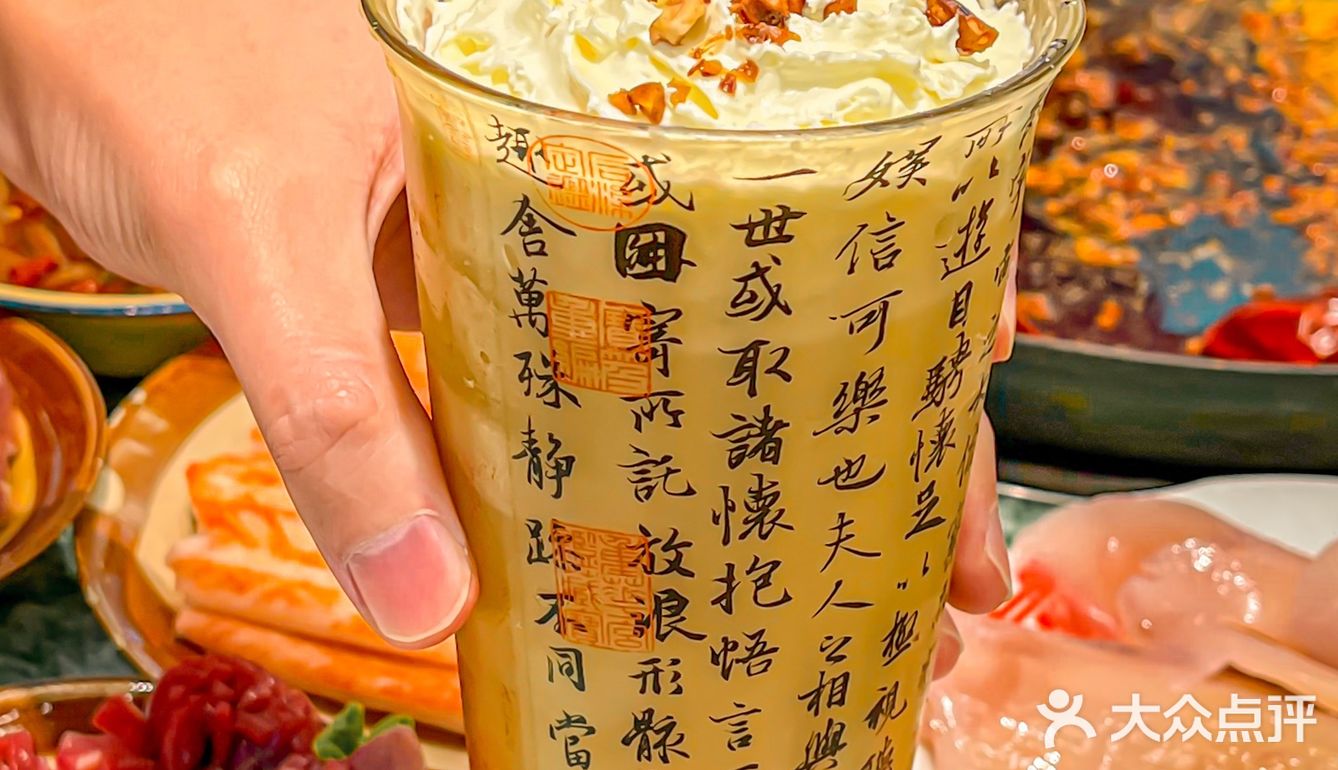 所以遊目騁懷足以極視聽
娛信可樂也夫人之相與
一世或取諸懷抱悟言
或因寄所託放浪形骸
趣舍萬殊静躁不同當
大众点评